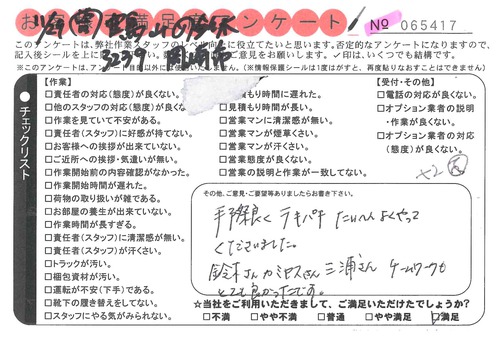 お客様満足アンケート
No 065417
このアンケートは、弊社作業スタッフのレベル向上に役立てたいと思います。否定的なアンケートになりますので、
記入後シールを上に ご意見をお願いします。✓印は、いくつでも結構です。
※このアンケートは、アンケート目的以外には使用いたしません。(※情報保護シールは1度はがすと、再度貼りなおすことはできません)
チェックリスト
【作業】
□責任者の対応(態度)が良くない。
□他のスタッフの対応(態度)が良くな
□作業を見ていて不安がある。
□責任者(スタッフ)に好感が持てない。
□お客様への挨拶が出来ていない。
□ご近所への挨拶・気遣いが無い。
□作業開始前の内容確認がなかった。
□作業開始時間が遅れた。
□荷物の取り扱いが雑である。
□お部屋の養生が出来ていない。
□作業時間が長すぎる。
□責任者(スタッフ)に清潔感が無い。
□責任者(スタッフ)が汗くさい。
□トラックが汚い。
□梱包資材が汚い。
□運転が不安(下手)である。
□靴下の履き替えをしてない。
□スタッフにやる気がみられない。
積もり時間に遅れた。
□見積もり時間が長い。
□営業マンに清潔感が無い。
□営業マンが煙草くさい。
□営業マンが汗くさい。
□営業態度が良くない。
□営業の説明と作業が一致してない。
【受付・その他】
□電話の対応が良くない。
□オプション業者の説明
・作業が良くない。
□オプション業者の対応
(態度)が良くない。
その他、ご意見・ご要望等ありましたらお書き下さい。
手際良く テキパキ たいへんよくやって
くださいました。
鈴木さん カミヤスさん 三浦さん チームワークも
とても良かったです。
☆当社をご利用いただきまして、ご満足いただけたでしょうか?
□不満 □やや不満 □普通 □やや満足 ☑満足